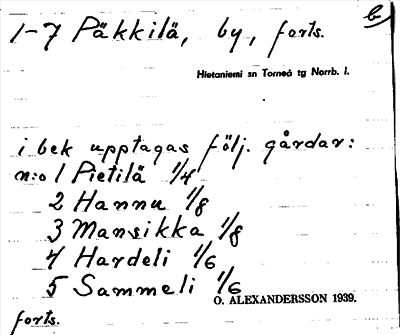 1-7 Päkkilä, by, forts.
Hietaniemi sn Torneå tg Norrb. l.
i bek upptagas följ. gårdar:
n:o 1 Pietilä 1/4
2 Hannu 1/8
3 Mansikka 1/8
4 Hardeli 1/6
5 Sammeli 1/6
O. ALEXANDERSSON 1939.
forts.